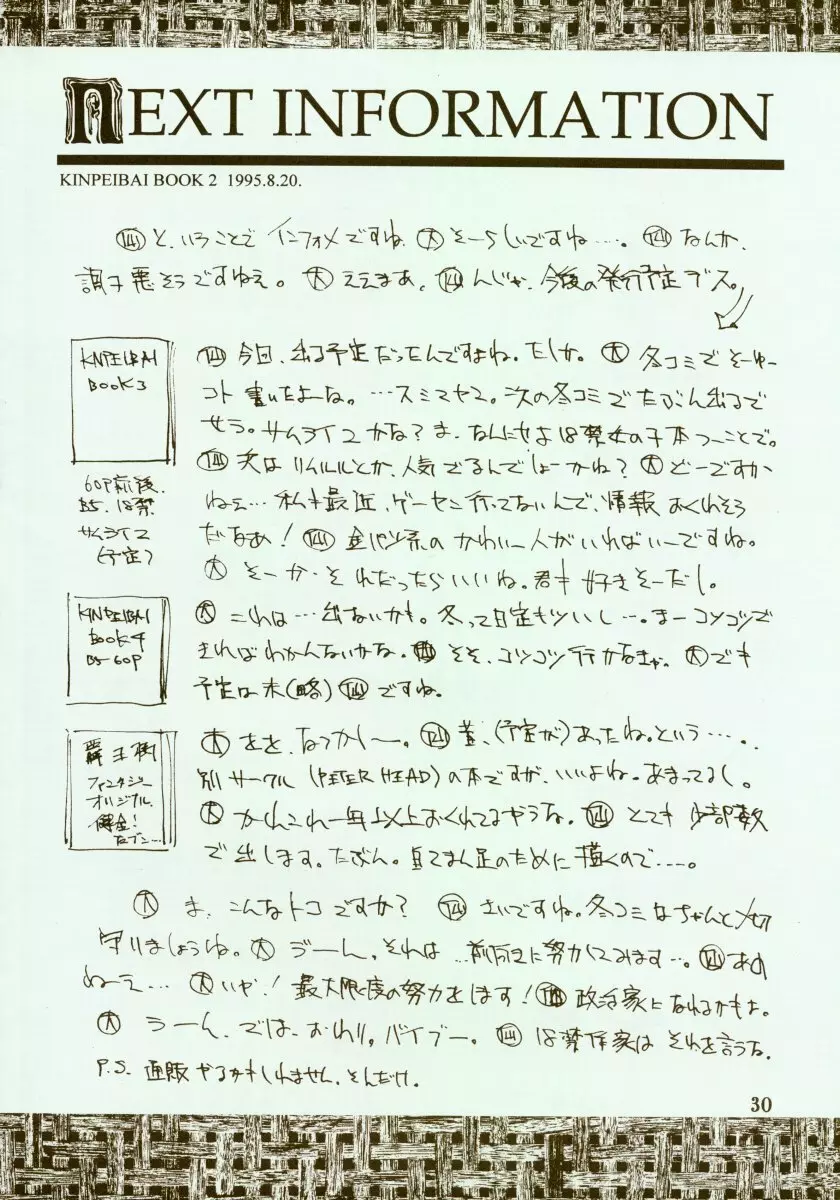 NEXT INFORMATION
KINPEIBAI BOOK 2 1995.8.20.
と、いうことで インフォメですね 大 そーらしいですね…。 なんか、
調子悪そうですねぇ。 大 ええまあ、 んじゃ、今後の発行予定デス。
KINPEIBAI
BOOK3
60P前後、
B5、18禁
サムライ2
(予定)
今回、出る予定だったんですよね。たしか。 大 冬コミでそーゆー
コト書いたよーな。…スミマセン。次の冬コミでたぶん出るで
せう。サムライ2かな?ま、なんにせよ18禁女の子本っつーことで。
次はリムルルとか、人気でるんでしょーかね? 大 どーですか
ねぇ…私も最近、ゲーセン行ってないんで、情報おくれそう
だなあ! 金パツ系のかわいー人がいればいーですね。
大 そーか・それだったらいいね。君も好きそーだし。
KINPEIBAI
BOOK4
B5-60P
大 これは…出ないかも。冬って日定もツいし…。まーコツコツで
きればわかんないかな。 そそ、コツコツ行かなきゃ。 大 でも
予定は未(略) ですね。
覇王樹
ファンタジー
オリジナル
大 をを、なつかし〜。 昔、(予定が)あったね。という…..
別サークル(PETER HEAD)の本ですが、いいよね。あまってるし。
大 かれこれ一年以上おくれてるやうな。 とても少部数
で出します。たぶん。自己まん足のために描くので…。
大 ま、こんなトコですか? さいですね。冬コミはちゃんと〆切
守りましょうね。 大 うーん、それは…前向きに努力してみます…。 あの
ねーえ… 大 いや!最大限度の努力をします! 政治家になれるかもよ。
大 うーん、では、おわり。バイブー。 18禁作家はそれを言うな。
P.S. 通販やるかもしれません、そんだけ。
30